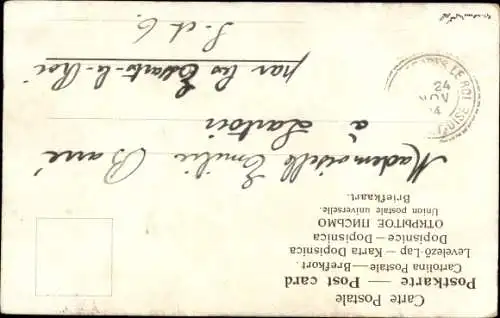 Carte Postale
Postkarte — Post card
Cartolina Postale — Brefkort.
Levelező-Lap — Karta Dopisnica
Dopisnice — Dopisnica
ОТКРЫТОЕ ПИСЬМО
Union postale universelle.
Briefkaart.
Mademoiselle Emilie Barré
à Sartoir
par les Essarts-le-Roi
S. et O.
LE ROI
24
NOV